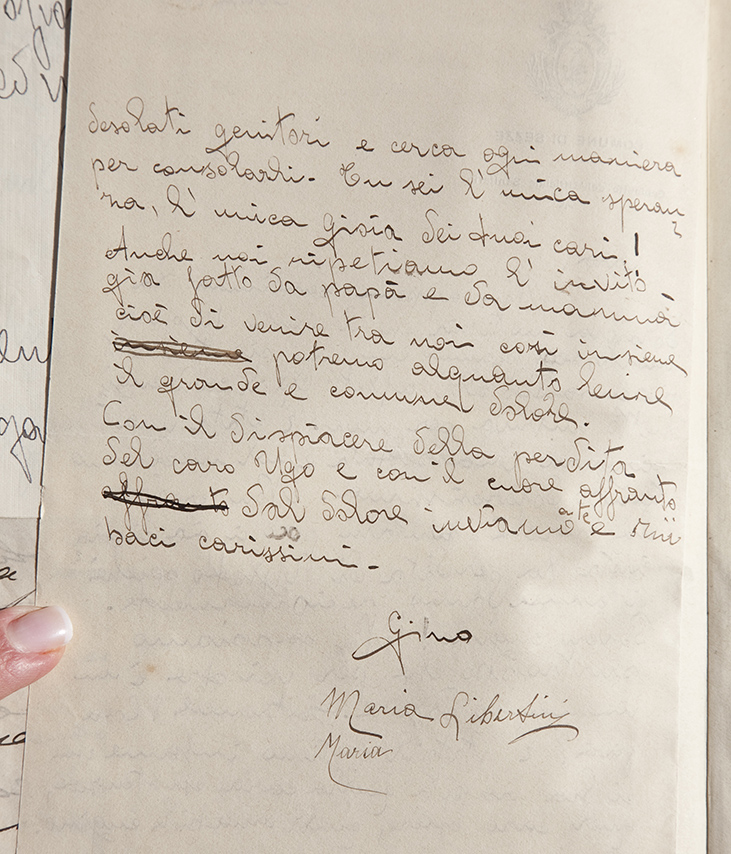 desolati genitori e cerca ogni maniera
per consolarli. Tu sei l'unica speran
za, l'unica gioia dei tuoi cari!
Anche noi ripetiamo l'invito
già fatto da papà e da mammà
cioè di venire tra noi così insieme
insieme potremo alquanto lenire
il grande e comune dolore.
Con il dispiacere della perdita
del caro Ugo e con il cuore affranto
affranto dal dolore inviamo a te e
baci carissimi.
Gino
Maria Libertini
Maria